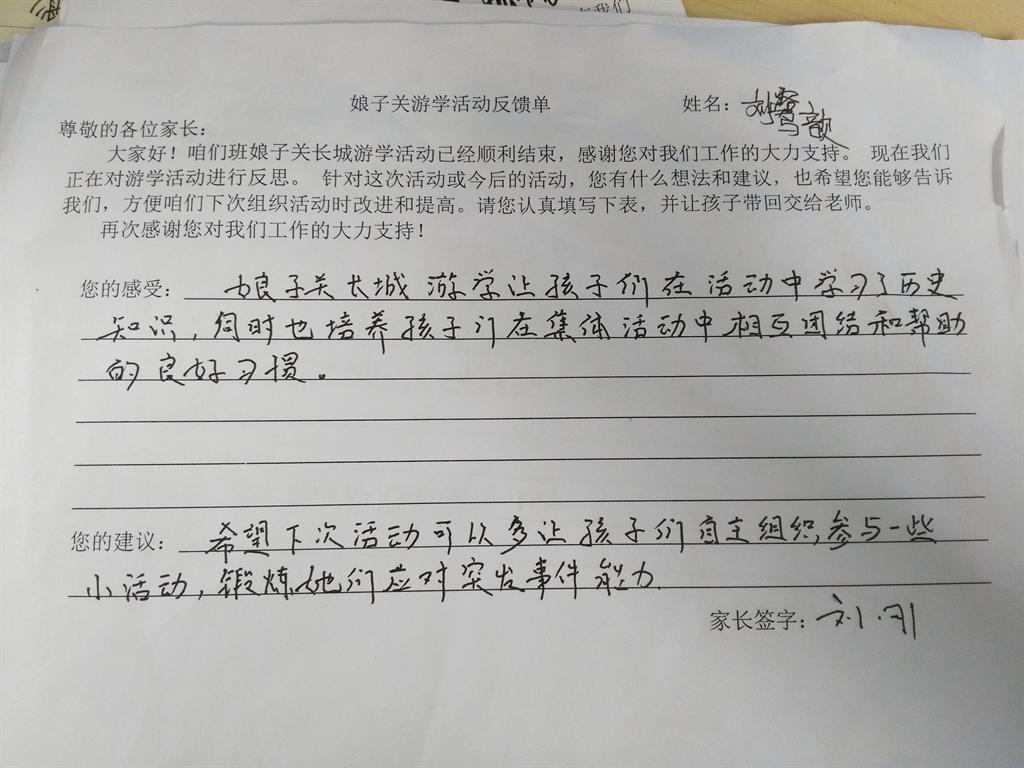 我们
娘子关游学活动反馈单 姓名：刘鹭歆
尊敬的各位家长：
大家好！咱们班娘子关长城游学活动已经顺利结束，感谢您对我们工作的大力支持。 现在我们
正在对游学活动进行反思。 针对这次活动或今后的活动，您有什么想法和建议，也希望您能够告诉
我们，方便咱们下次组织活动时改进和提高。请您认真填写下表，并让孩子带回交给老师。
再次感谢您对我们工作的大力支持！
您的感受： 娘子关长城游学让孩子们在活动中学习了历史
知识，同时也培养孩子们在集体活动中相互团结和帮助
的良好习惯。
您的建议： 希望下次活动可以多让孩子们自主组织,参与一些
小活动，锻炼她们应对突发事件能力.
家长签字：刘刚